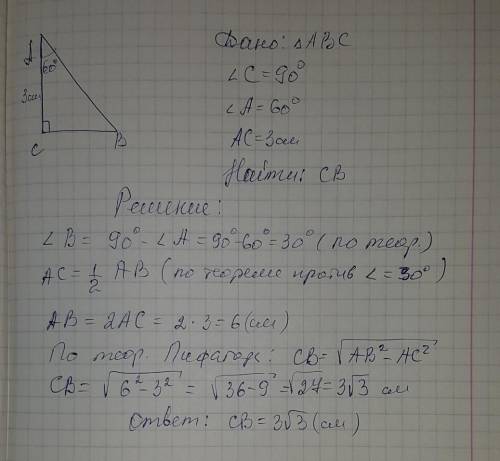 A
60°
3см
C
B
Дано: △ABC
∠C=90°
∠A=60°
AC=3см
Найти: CB
Решение:
∠B = 90°-∠A=90°-60°=30° (по теор.)
AC=1/2 AB (по теореме против ∠=30°)
AB = 2AC = 2·3=6(см)
По теор. Пифагора: CB=√(AB²-AC²)
CB= √(6²-3²) = √(36-9) =√27=3√3 см
Ответ: CB=3√3(см)